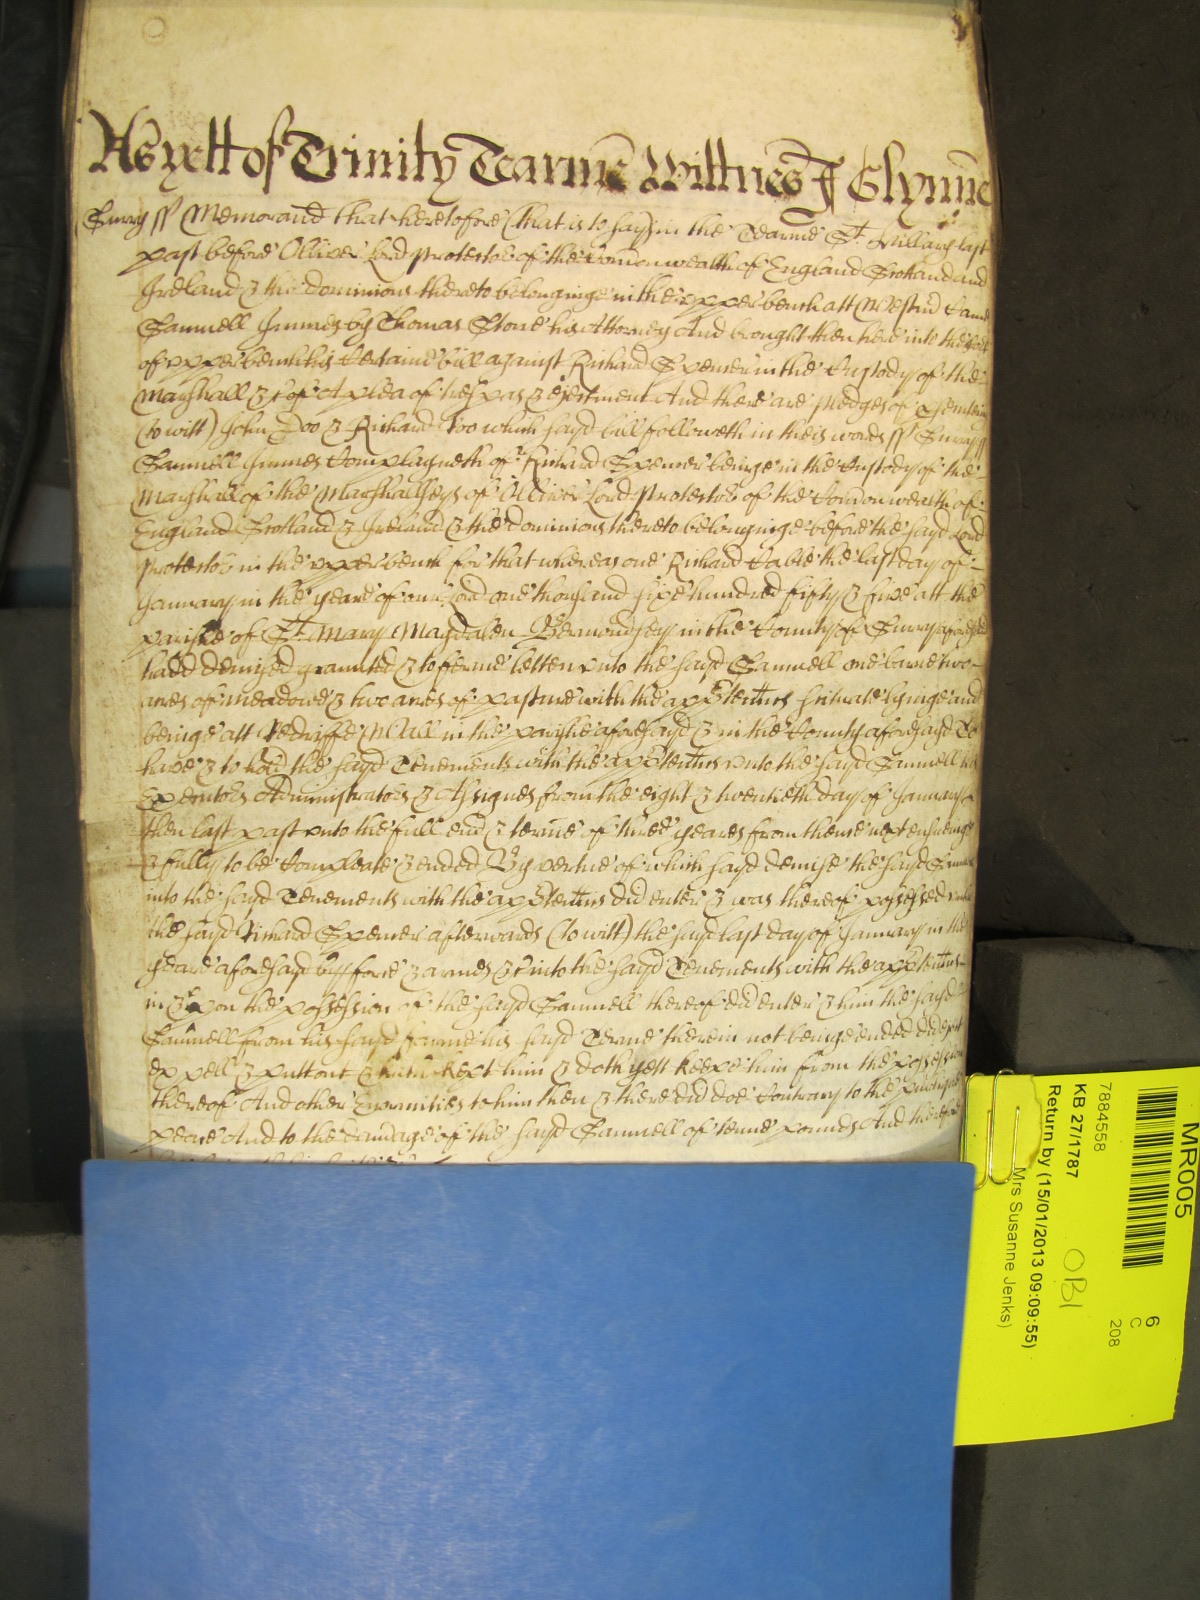 As yett of Trinity Tearme Wittnes J Glynne
Surry ss Memorand that heretofore (that is to say) in the Tearme St. Hillary last
past before Olliver Lord Protector of the Comonwealth of England Scotland and
Ireland & the dominions thereto belonginge in the upper bench att Westm Came
Samuell Jmmes by Thomas Stone his Attorney And brought then here into the
of upper bench his Certaine bill against Richard Spencer in the Custody of the
Marshall &c of A plea of trespas & ejectment And there are pledges of
(to witt) John Doo & Richard Roo which sayd bill followeth in theis words ss Surry ss
Samuell Jmmes Complayneth of Richard Spencer beinge in the Custody of the
Marshall of the Marshallseys of Olliver Lord Protector of the Comonwealth of
England Scotland & Ireland & the dominions thereto belonginge before the sayd Lord
Protector in the upper bench for that whereas one Richard Cable the last day of
January in the yeare of our Lord one thousand sixe hundred fifty & five att the
parishe of St. Mary Magdalen Bermondsey in the County of Surry aforesayd
hadd demised graunted & to ferme letten unto the sayd Samuell one barne two
acres of meadowe & two acres of pasture with the appertentns scituate lyinge and
beinge att Redriffe Wall in the parishe aforesayd & in the County aforesayd To
have & to hold the sayd Tenements with the appertentns unto the sayd Samuell his
Executors Administrators & Assignes from the eight & twentieth day of January
then last past unto the full end & terme of three yeares from thence next ensueinge
& fully to be Compleate & ended By vertue of which sayd demise the sayd Samuell
into the sayd Tenements with the appertentns did enter & was thereof possessed untill
the sayd Richard Spencer afterwards (to witt) the sayd last day of January in the
yeare aforesayd by force & armes &c into the sayd Tenements with the appertentns
in & upon the possession of the sayd Samuell thereof did enter & him the sayd
Samuell from his sayd ferme his sayd Terme therein not beinge ended did eject
expell & putt out & kept him & doth yett keepe him from the possession
thereof And other Enormities to him then & there did doe Contrary to the publique
peace And to the damage of the sayd Samuell of tenne pounds And thereof
MR005
6
C
208
7884558
KB 27/1787
OBI
Return by (15/01/2013 09:09:55)
Mrs Susanne Jenks)